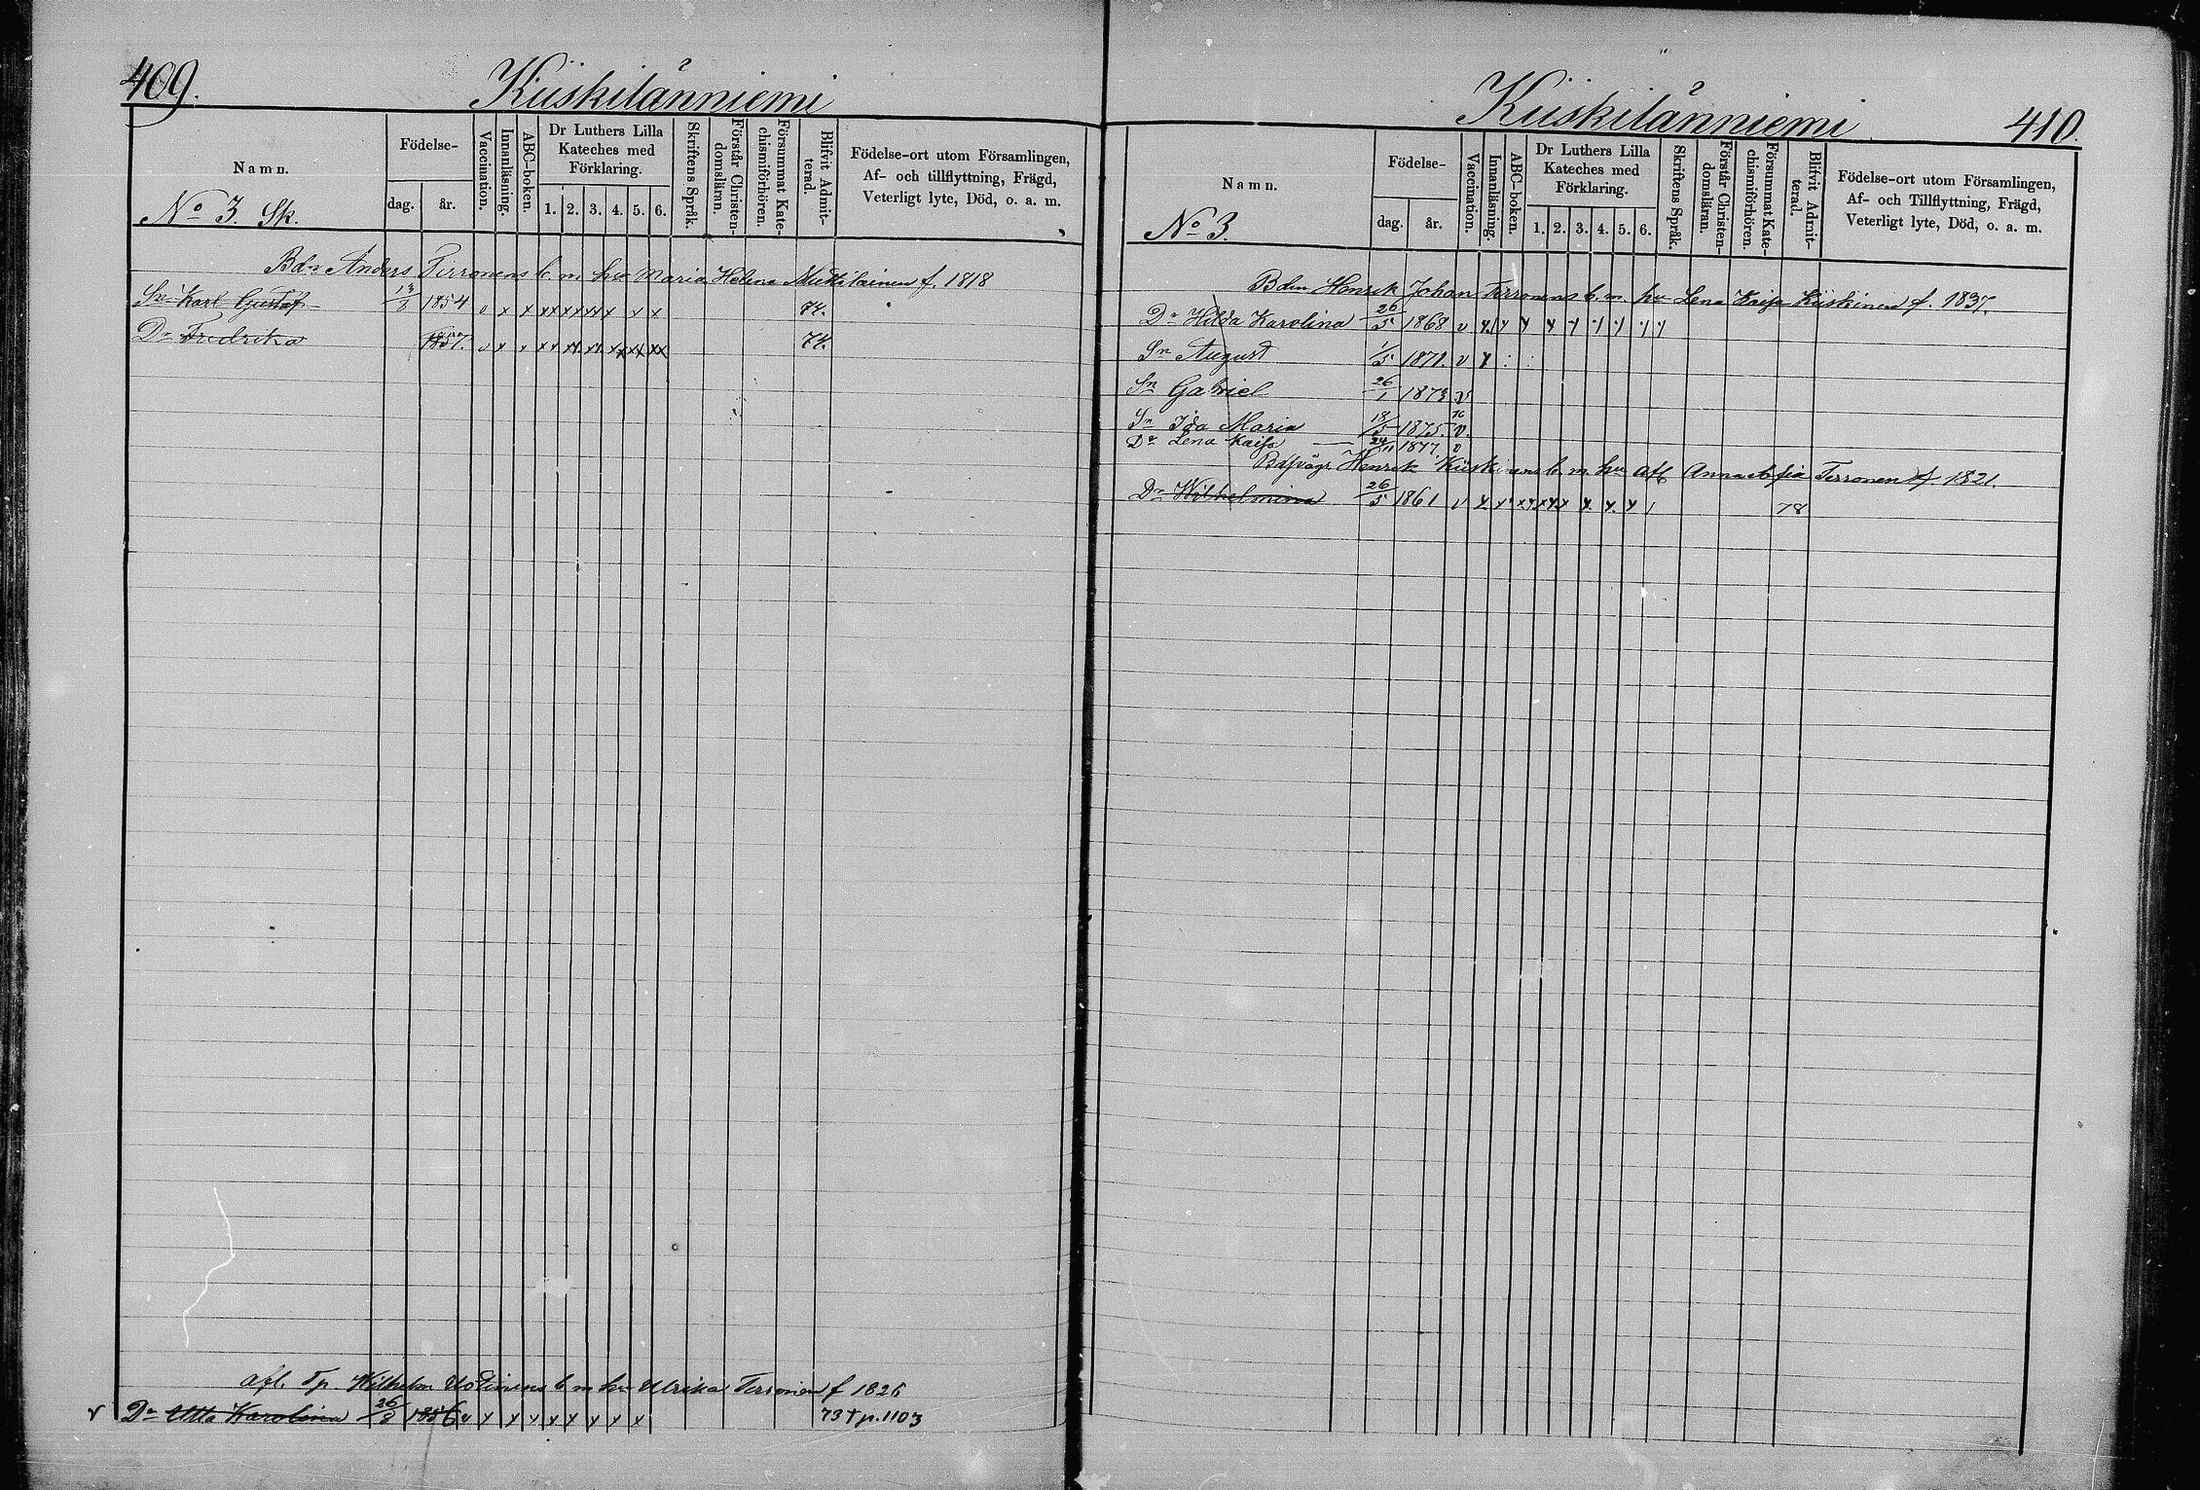 409.
Kiiskilänniemi
Namn.
Födelse-
dag.
år.
Vaccination.
Innanläsning.
ABC-boken.
Dr Luthers Lilla
Kateches med
Förklaring.
1. 2. 3. 4. 5. 6.
Skriftens Språk.
Förstår Christen-
domsläran.
Försummat Kate-
chismiförhören.
Blifvit Admit-
terad.
Födelse-ort utom Församlingen,
Af- och tillflyttning, Frägd,
Veterligt lyte, Död, o. a. m.
No 3. Sk.
Bdn Anders Tirronens b. m. hu Maria Helena f. 1818
Sn Karl Gustaf 1854 v x x xx xx xx x x x 74.
Dr Fredrika 1857. v x x xx xx xx xx xx xx 74.
afl. Tp Wilhelm b m hu Ulrika Terronen f
v Dr Karolina 26/3 1856 v x x x x x x x x 73 t p. 1103
Kiiskilänniemi
410.
Namn.
Födelse-
dag.
år.
Vaccination.
Innanläsning.
ABC-boken.
Dr Luthers Lilla
Kateches med
Förklaring.
1. 2. 3. 4. 5. 6.
Skriftens Språk.
Förstår Christen-
domsläran.
Försummat Kate-
chismiförhören.
Blifvit Admit-
terad.
Födelse-ort utom Församlingen,
Af- och Tillflyttning, Frägd,
Veterligt lyte, Död, o. a. m.
No 3.
Bdn Henrik Johan Tirronens b. m. hu Lena Kaisa Kiiskinen f. 1837.
Dr Hilda Karolina 26/5 1868 v
Sn August 1/5 1871. v x
Sn Gabriel 26/1 1873 v
Sn Ida Maria 18/5 1875. v. 76
Dr Lena Kaisa 24/11 1877. v
Henrik Kiiskinens b. m. hu afl Anna Sofia Terronen f. 1821
Dr Wilhelmina 26/5 1861 v 78